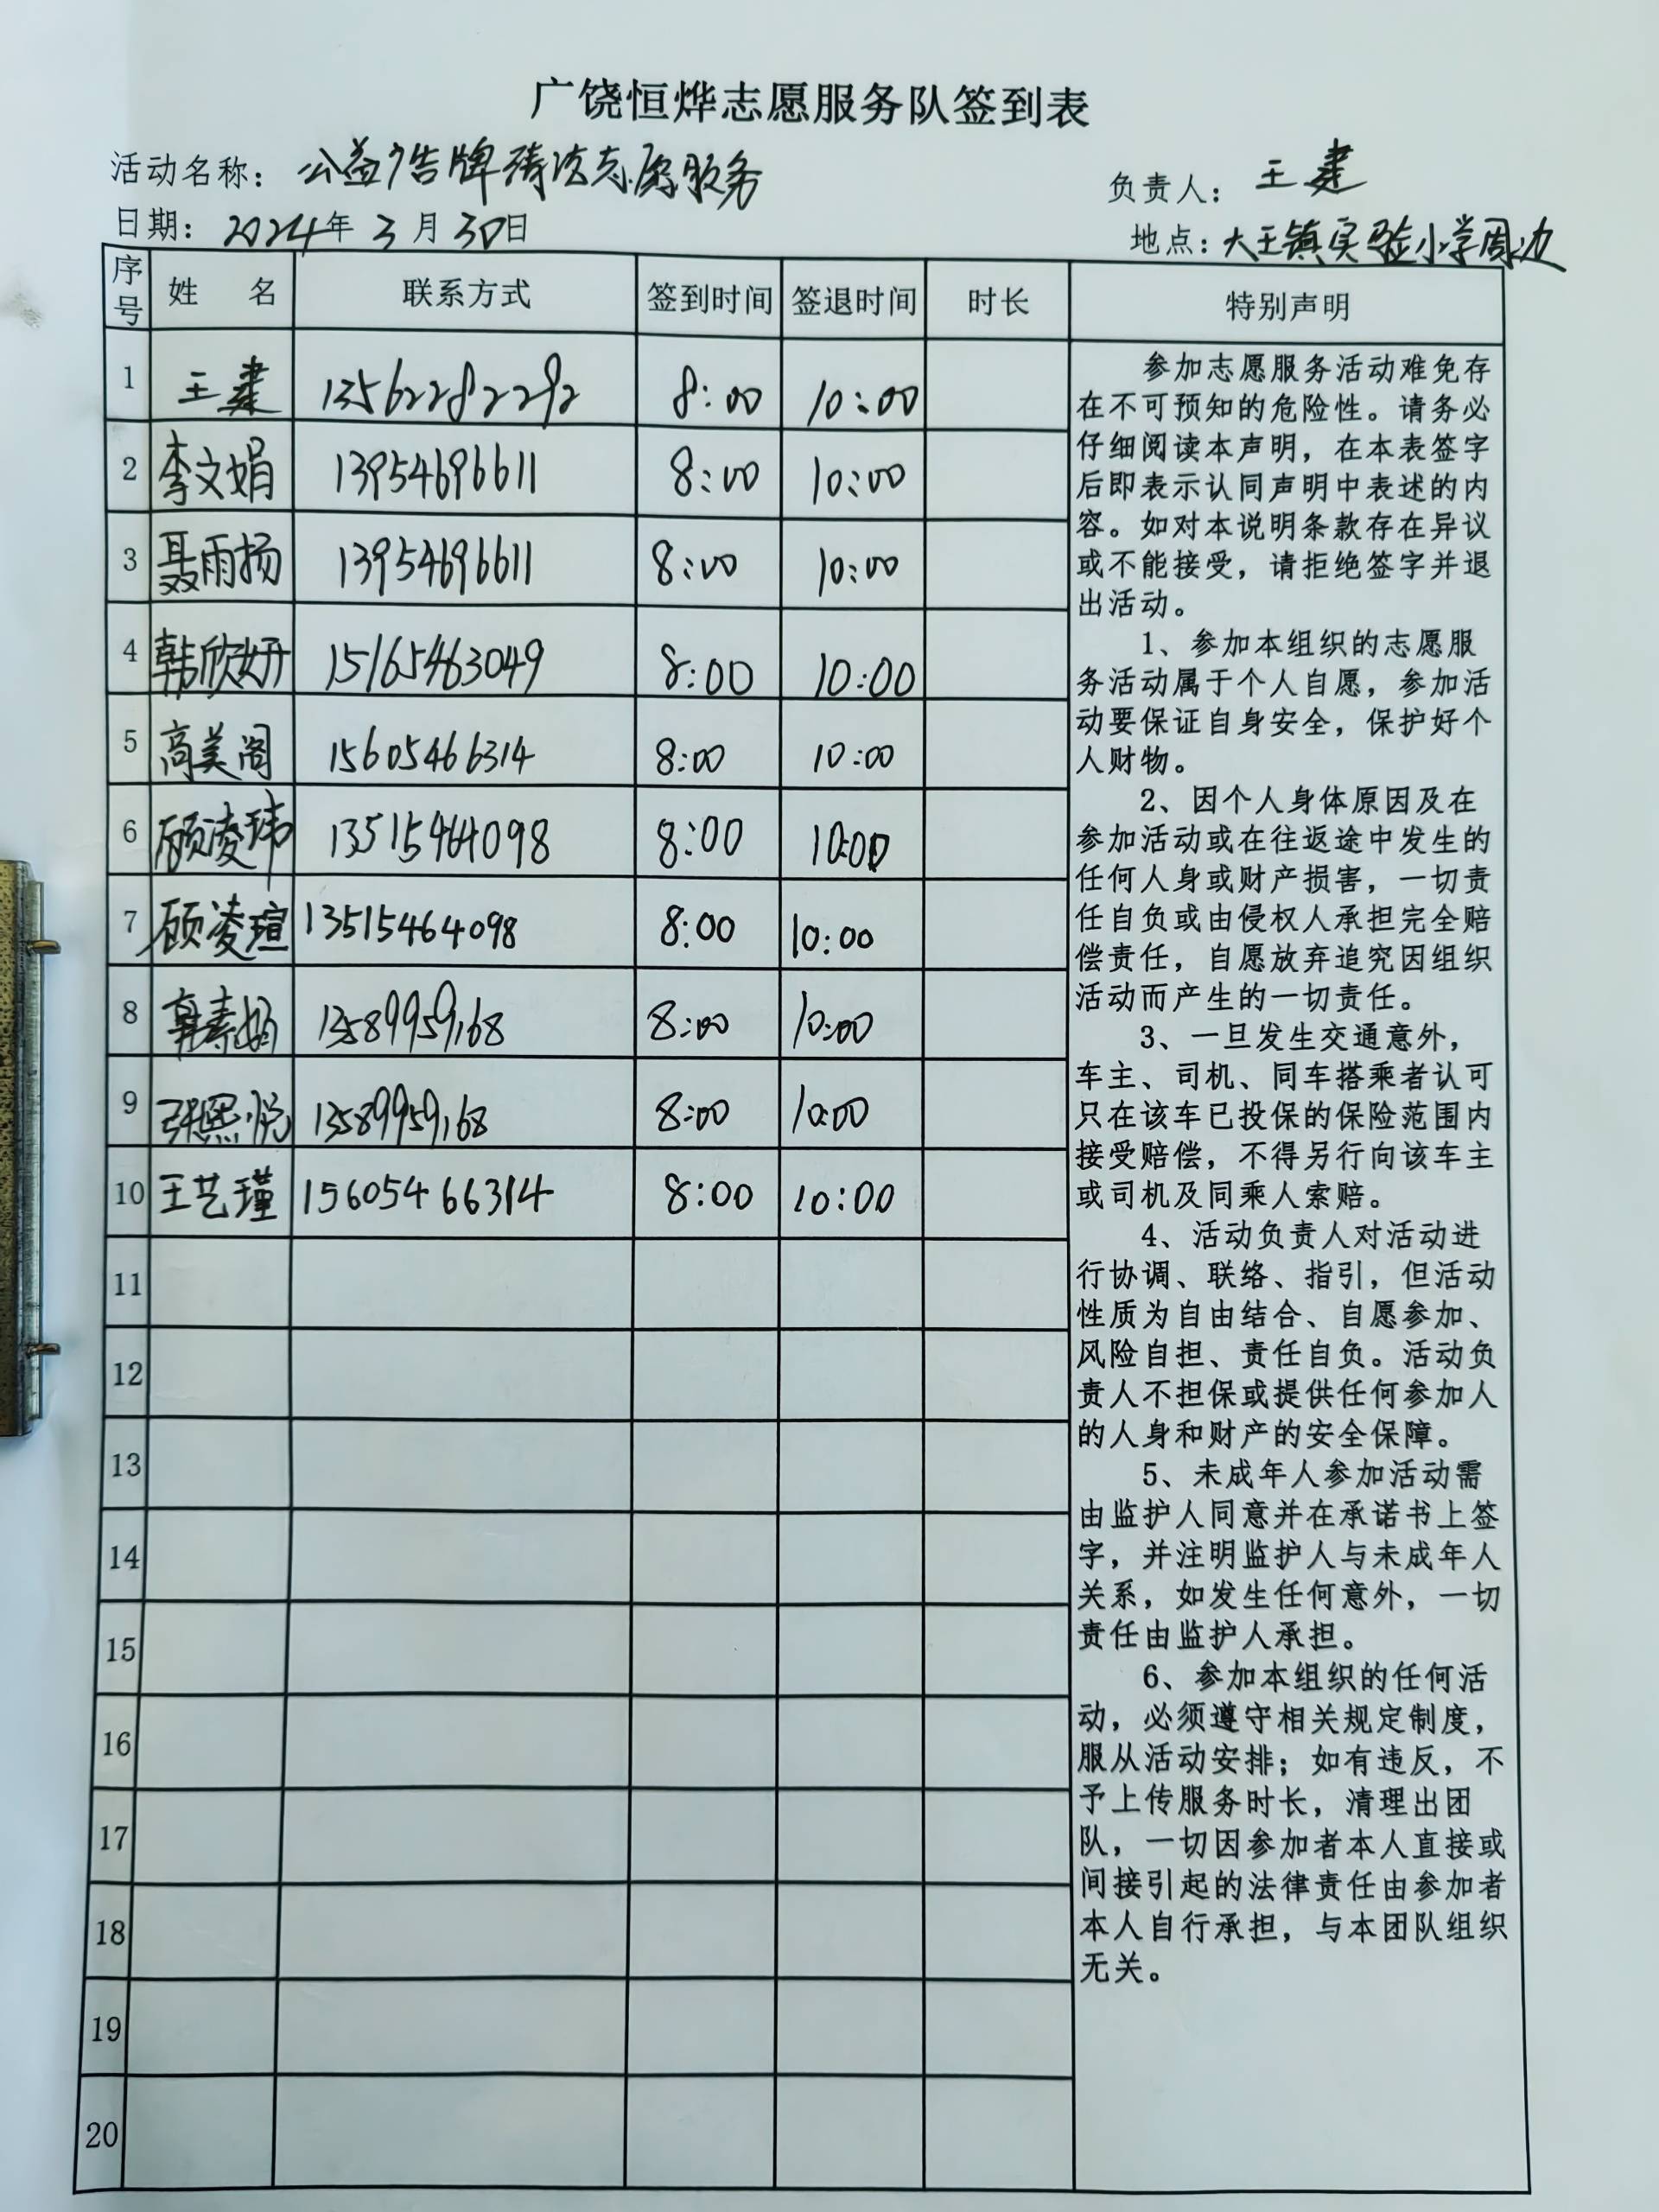 广饶恒烨志愿服务队签到表
活动名称：公益广告牌清洁志愿服务 负责人：王建
日期：2024年3月30日 地点：大王镇实验小学周边
序号 姓 名 联系方式 签到时间 签退时间 时长 特别声明
1 王建 13562282292 8:00 10:00
2 李文娟 13954696611 8:00 10:00
3 聂雨扬 13954696611 8:00 10:00
4 韩欣妍 15165463049 8:00 10:00
5 高美阁 15605466314 8:00 10:00
6 顾凌玮 13515464098 8:00 10:00
7 顾凌瑄 13515464098 8:00 10:00
8 13589959168 8:00 10:00
9 张熙悦 13589959168 8:00 10:00
10 王艺瑾 15605466314 8:00 10:00
11
12
13
14
15
16
17
18
19
20
参加志愿服务活动难免存
在不可预知的危险性。请务必
仔细阅读本声明，在本表签字
后即表示认同声明中表述的内
容。如对本说明条款存在异议
或不能接受，请拒绝签字并退
出活动。
1、参加本组织的志愿服
务活动属于个人自愿，参加活
动要保证自身安全，保护好个
人财物。
2、因个人身体原因及在
参加活动或在往返途中发生的
任何人身或财产损害，一切责
任自负或由侵权人承担完全赔
偿责任，自愿放弃追究因组织
活动而产生的一切责任。
3、一旦发生交通意外，
车主、司机、同车搭乘者认可
只在该车已投保的保险范围内
接受赔偿，不得另行向该车主
或司机及同乘人索赔。
4、活动负责人对活动进
行协调、联络、指引，但活动
性质为自由结合、自愿参加、
风险自担、责任自负。活动负
责人不担保或提供任何参加人
的人身和财产的安全保障。
5、未成年人参加活动需
由监护人同意并在承诺书上签
字，并注明监护人与未成年人
关系，如发生任何意外，一切
责任由监护人承担。
6、参加本组织的任何活
动，必须遵守相关规定制度，
服从活动安排；如有违反，不
予上传服务时长，清理出团
队，一切因参加者本人直接或
间接引起的法律责任由参加者
本人自行承担，与本团队组织
无关。